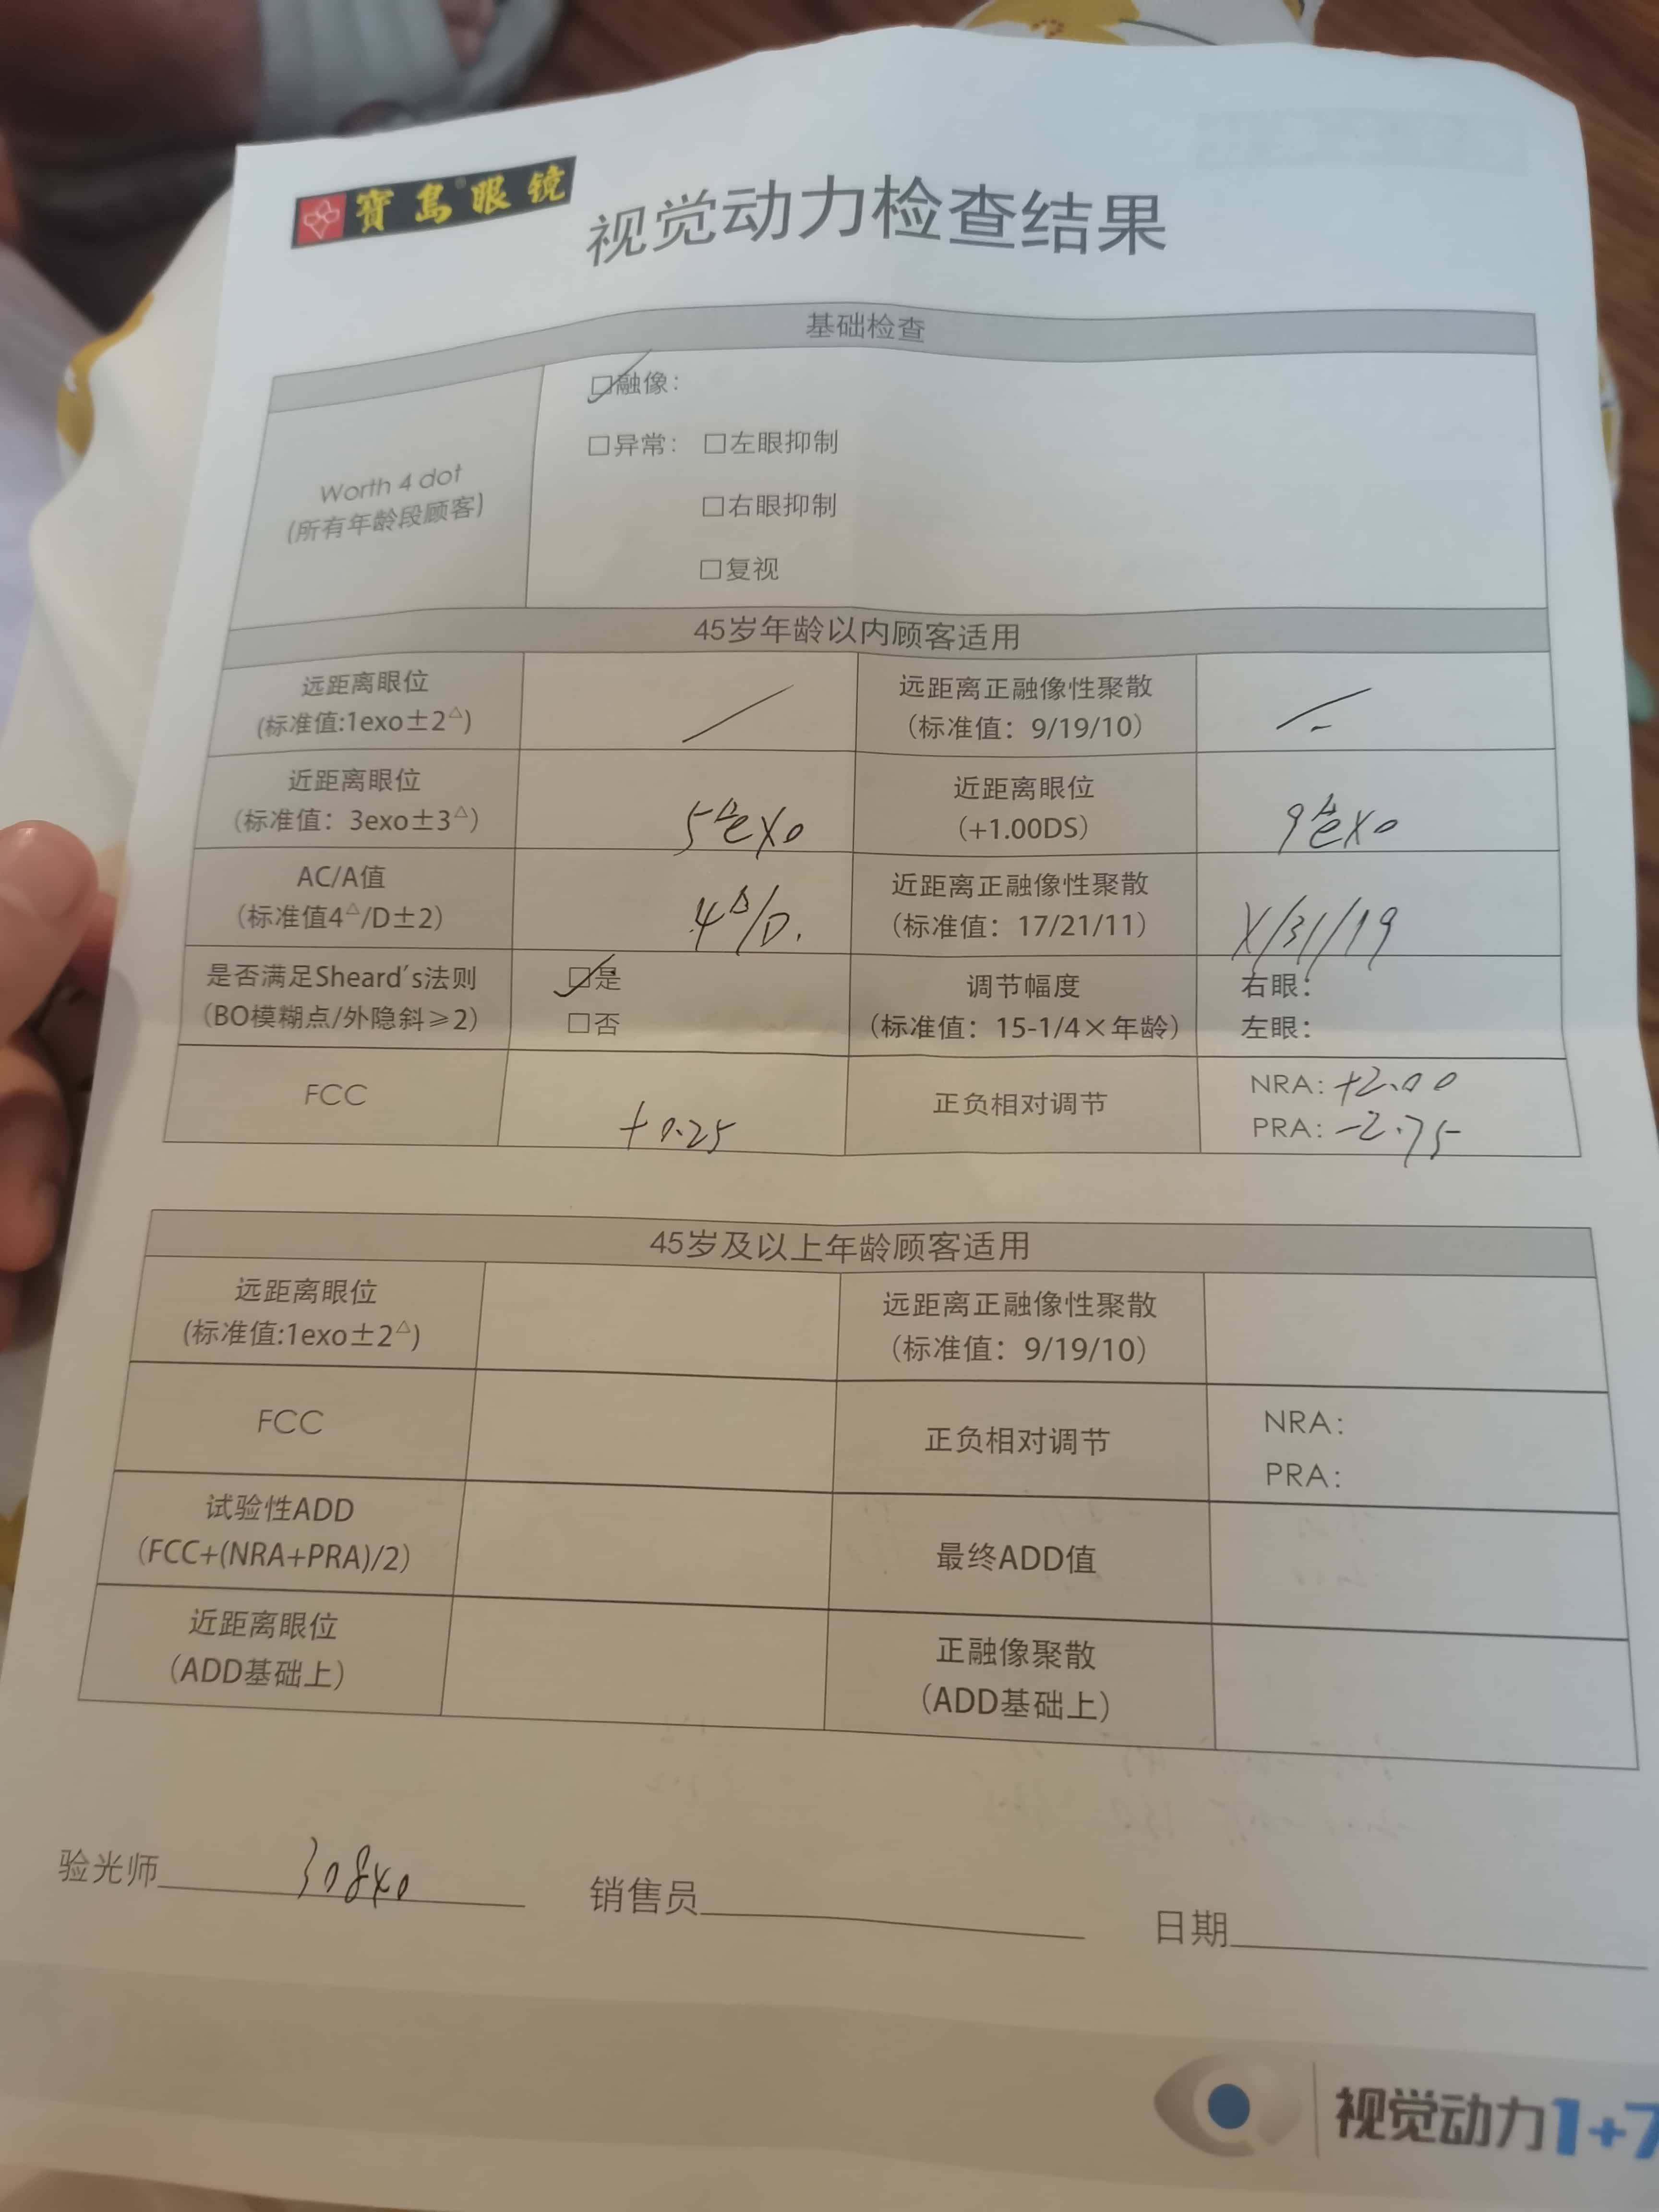 寶島眼镜
视觉动力检查结果
基础检查
Worth 4 dot
(所有年龄段顾客)
☑融像:
□异常: □左眼抑制
□右眼抑制
□复视
45岁年龄以内顾客适用
远距离眼位
(标准值:1exo±2△)
远距离正融像性聚散
(标准值: 9/19/10)
近距离眼位
(标准值: 3exo±3△)
5△exo
近距离眼位
(+1.00DS)
9△exo
AC/A值
(标准值4△/D±2)
4△/D.
近距离正融像性聚散
(标准值: 17/21/11)
X/31/19
是否满足Sheard's法则
(BO模糊点/外隐斜≥2)
☑是
□否
调节幅度
(标准值: 15-1/4×年龄)
右眼:
左眼:
FCC
+0.25
正负相对调节
NRA: +2.00
PRA: -2.75
45岁及以上年龄顾客适用
远距离眼位
(标准值:1exo±2△)
远距离正融像性聚散
(标准值: 9/19/10)
FCC
正负相对调节
NRA:
PRA:
试验性ADD
(FCC+(NRA+PRA)/2)
最终ADD值
近距离眼位
(ADD基础上)
正融像聚散
(ADD基础上)
验光师
销售员
日期
视觉动力1+7